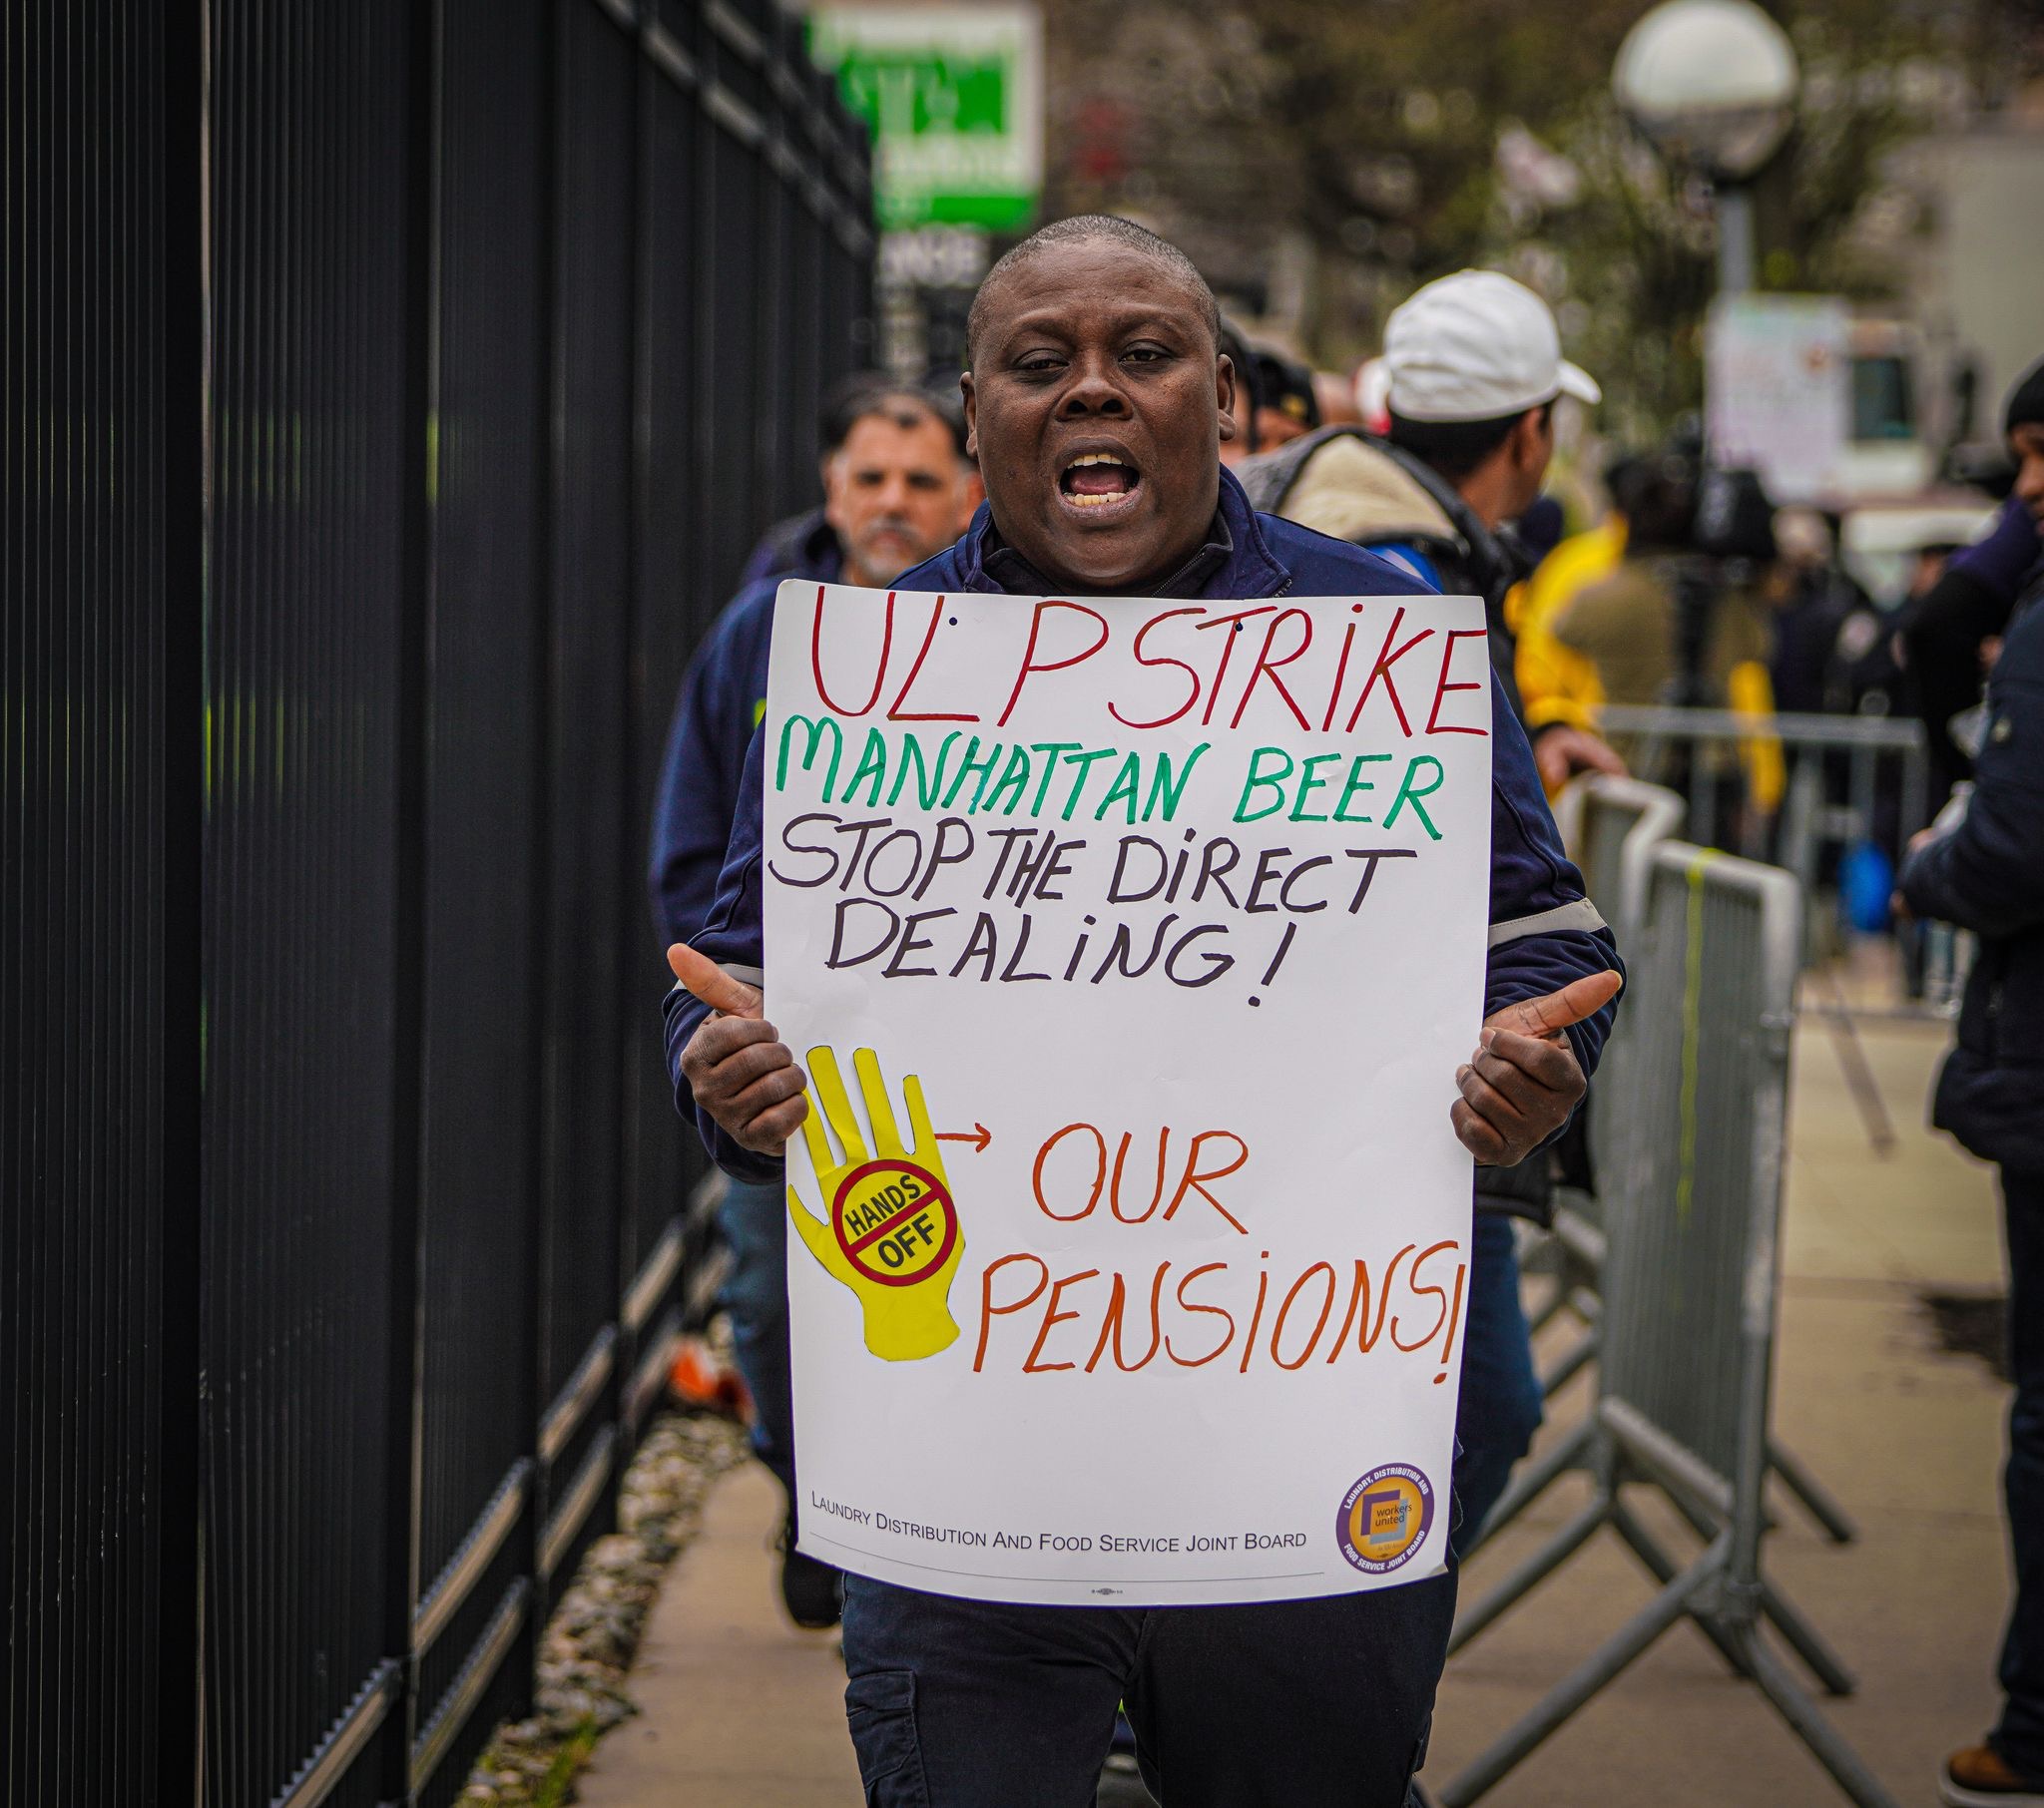 ULP STRiKE
MANHATTAN BEER
STOP THE DiRECT
DEALiNG!
HANDS
OFF
→ OUR
PENSiONS!
LAUNDRY DISTRIBUTION AND FOOD SERVICE JOINT BOARD
LAUNDRY, DISTRIBUTION AND
workers
united
FOOD SERVICE JOINT BOARD